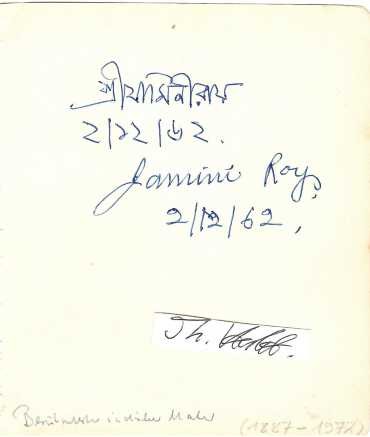 শ্রীযামিনীরায়
২/১২/৬২.
Jamini Roy
2/12/62,
Th.
Berühmter indischer Maler (1887-1972)